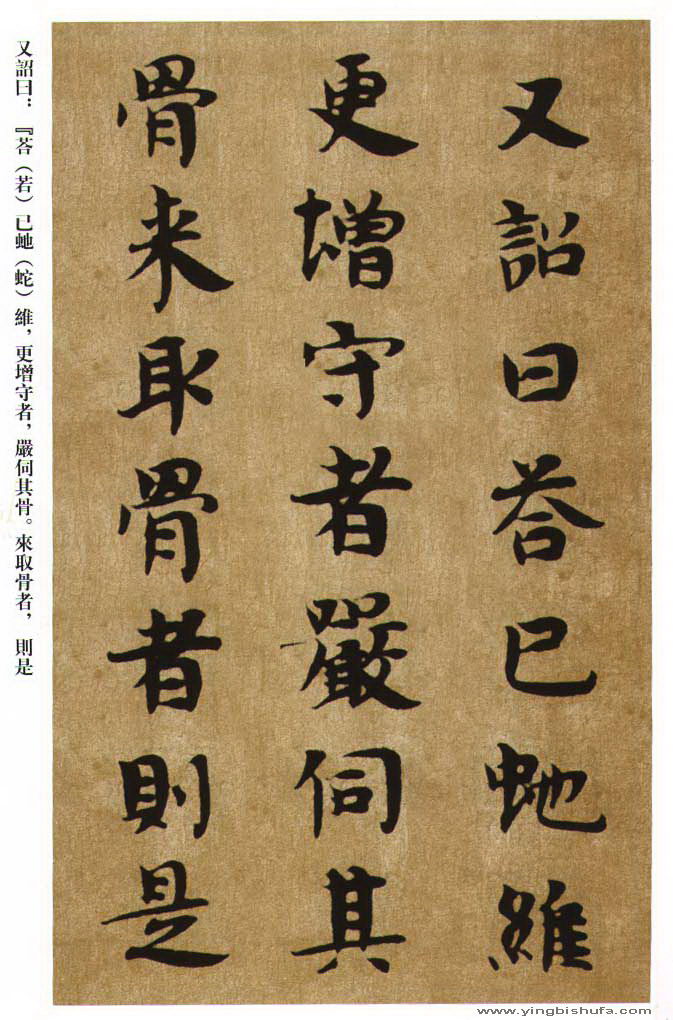 又詔曰荅已虵維
更增守者嚴伺其
骨来取骨者則是
又詔曰：『荅（若）已虵（蛇）維，更增守者，嚴伺其骨。來取骨者，則是
www.yingbishufa.com